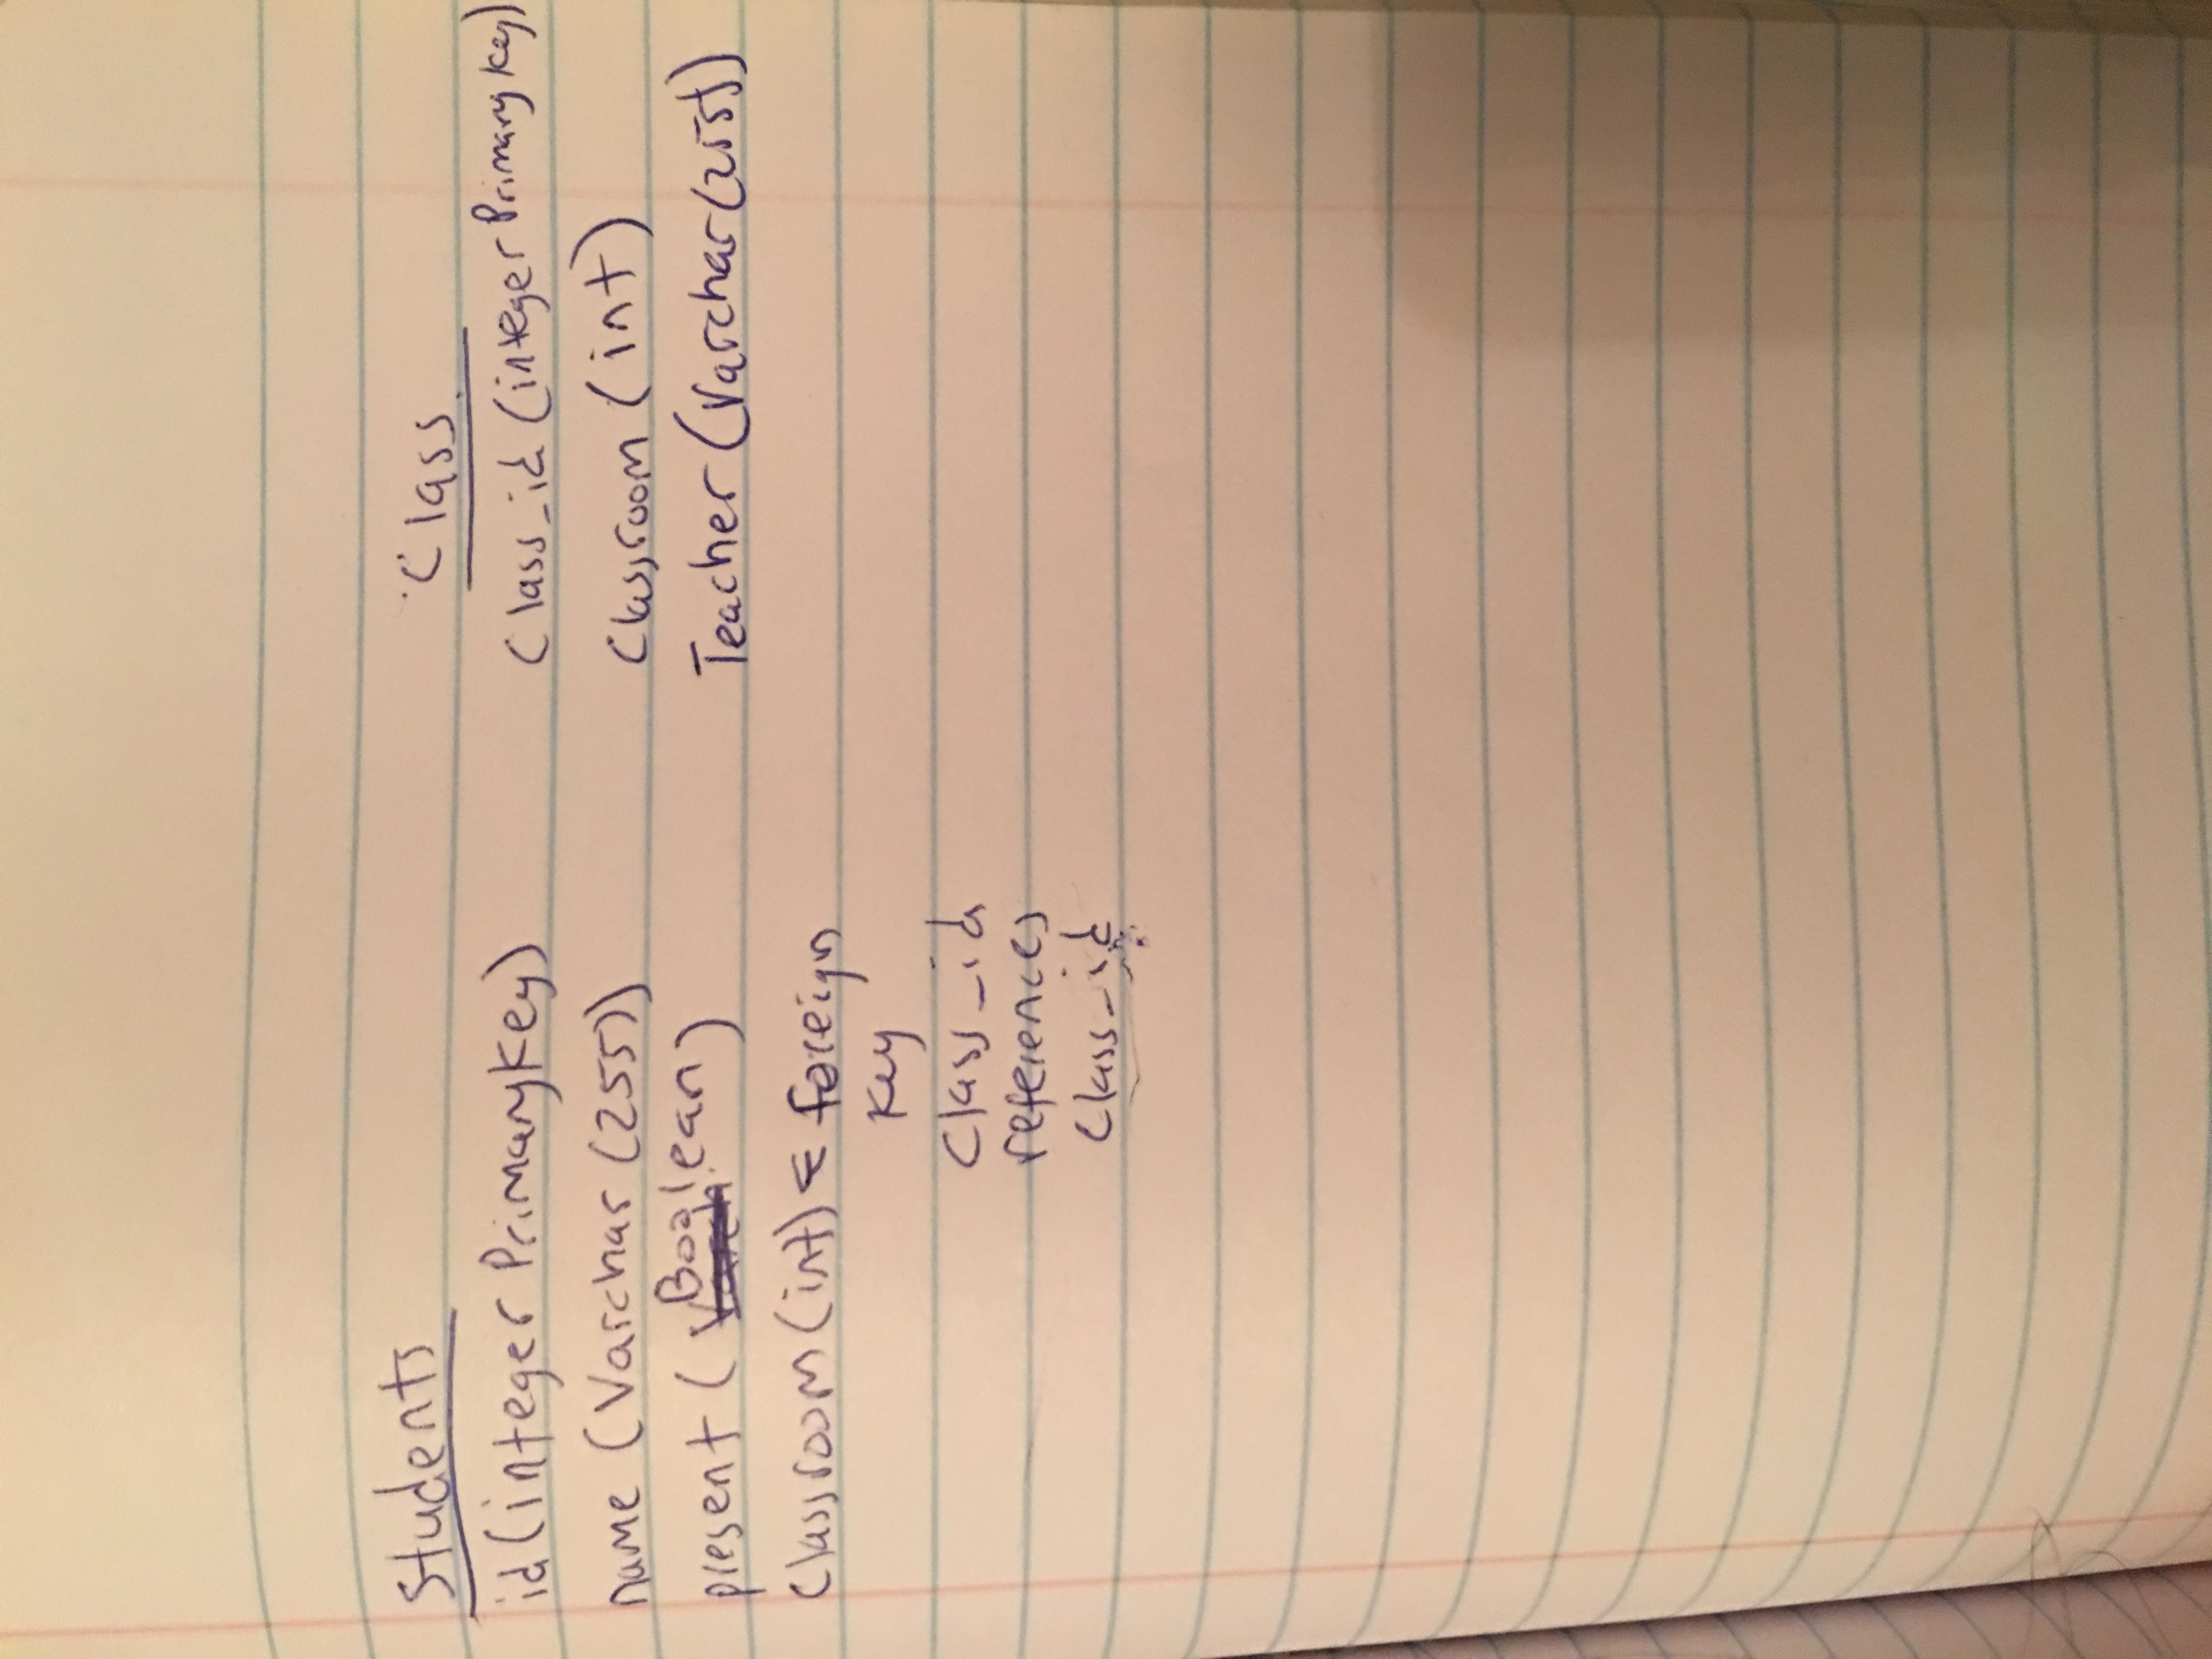 Students
id (integer Primary Key)
name (Varchar (255))
present ( Boolean )
Classroom (int) ← foreign
Key
Class_id
references
Class_id
Class
Class_id (integer Primary Key)
Classroom (int)
Teacher (Varchar (255))